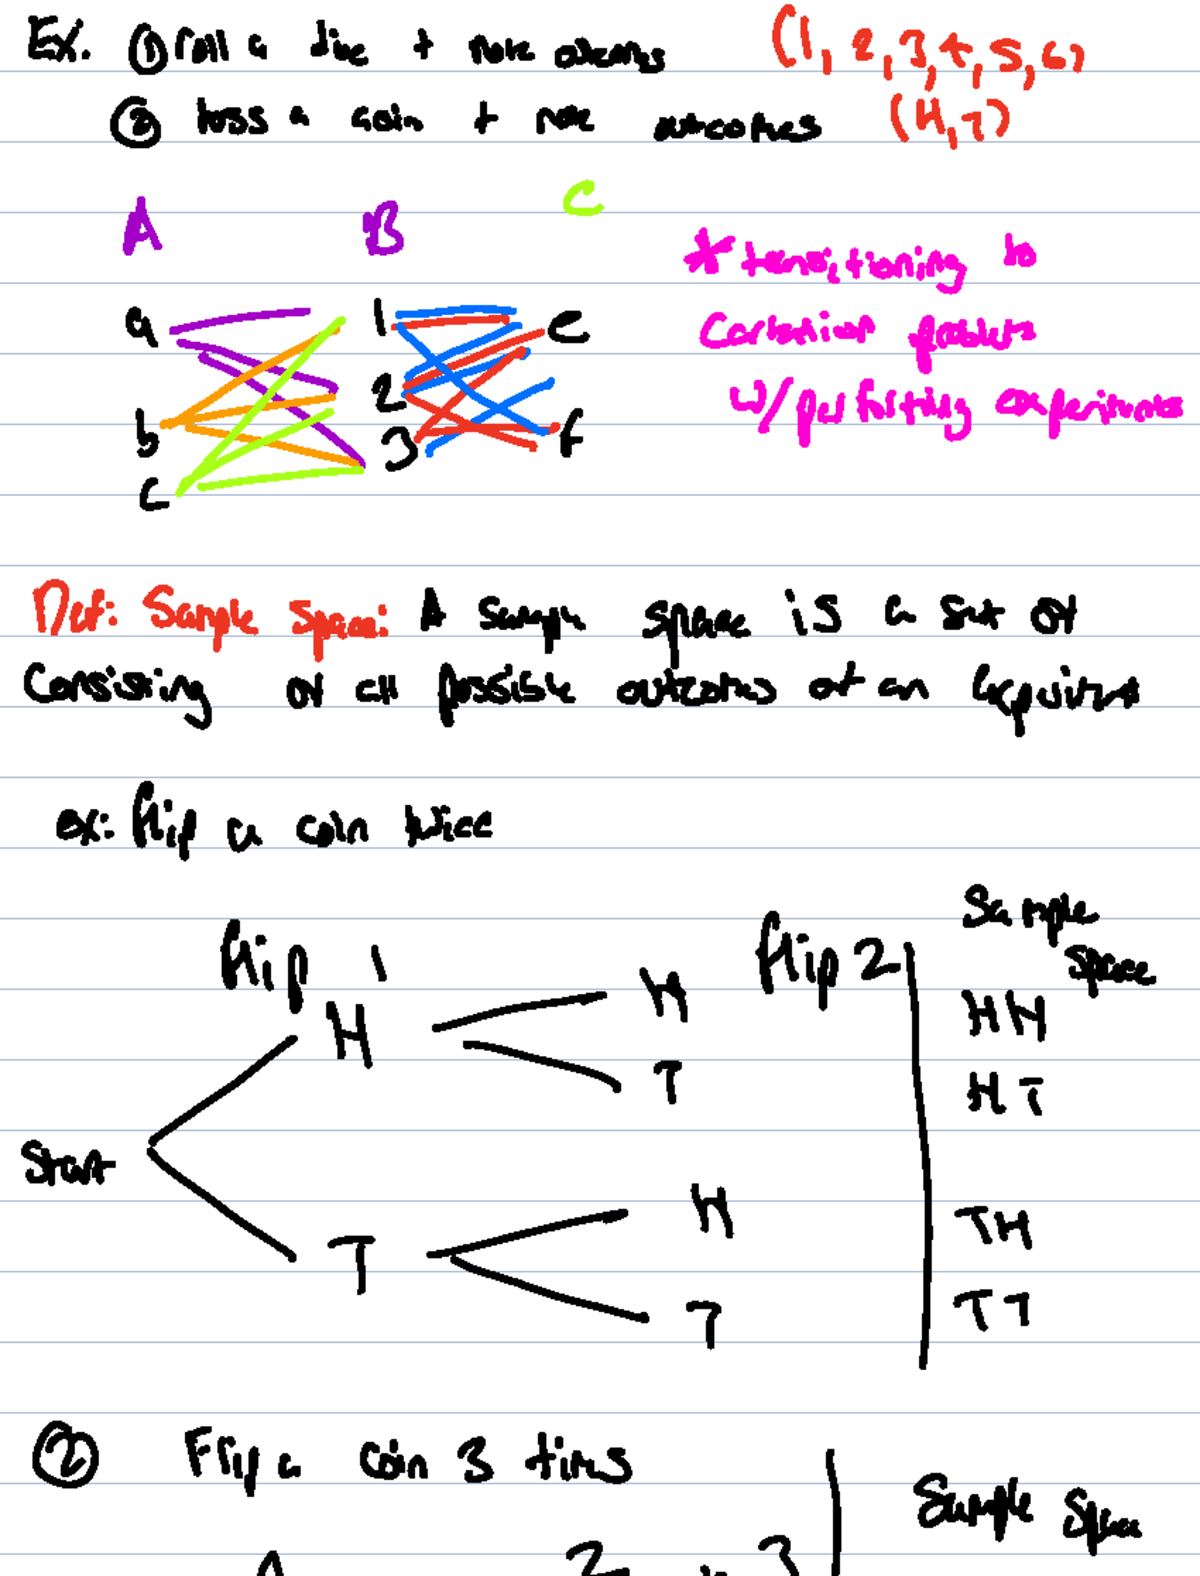 Ex. ① roll a dice + note outcomes (1, 2, 3, 4, 5, 6)
② toss a coin + note outcomes (H, T)
A B C
a 1 e
b 2 f
c 3
* transitioning to
Cartesian problems
w/ performing experiments
Def: Sample Space: A sample space is a set of
Consisting of all possible outcomes of an experiment
ex: flip a coin twice
Sample
flip 1 flip 2 space
H H HH
T HT
Start
T H TH
T TT
② Flip a coin 3 times Sample Space
2 3